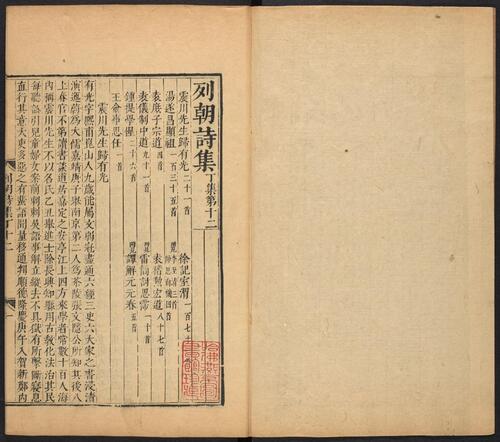 列朝詩集丁集第十二
震川先生歸有光二十一首
徐記室渭一百七十
湯遂昌顯祖一百三十五首
袁庶子宗道四首
袁稽勳宏道八十七首
袁儀制中道九十一首
雷簡討思霈一十首
鍾提學惺二十六首
譚解元元春五首
王僉事思任一首
震川先生歸有光
有光字熙甫崑山人九歲能屬文弱冠盡通六經三史六大家之書浸漬
演迤蔚為大儒嘉靖庚子舉南京第二人為茶陵張文隱公所知其後八
上春官不第讀書談道於嘉定之安亭江上四方來學者常數十百人海
內稱震川先生不以名氏乙丑舉進士除長興知縣用古教化法治其民
每聽訟引兒童婦女案前刺刺吳語事解立縱去不具獄有所擊斷寢息
直行其意大吏多惡之有蜚語聞量移通判順德隆慶庚午入賀新鄭內
列朝詩集丁十二
一